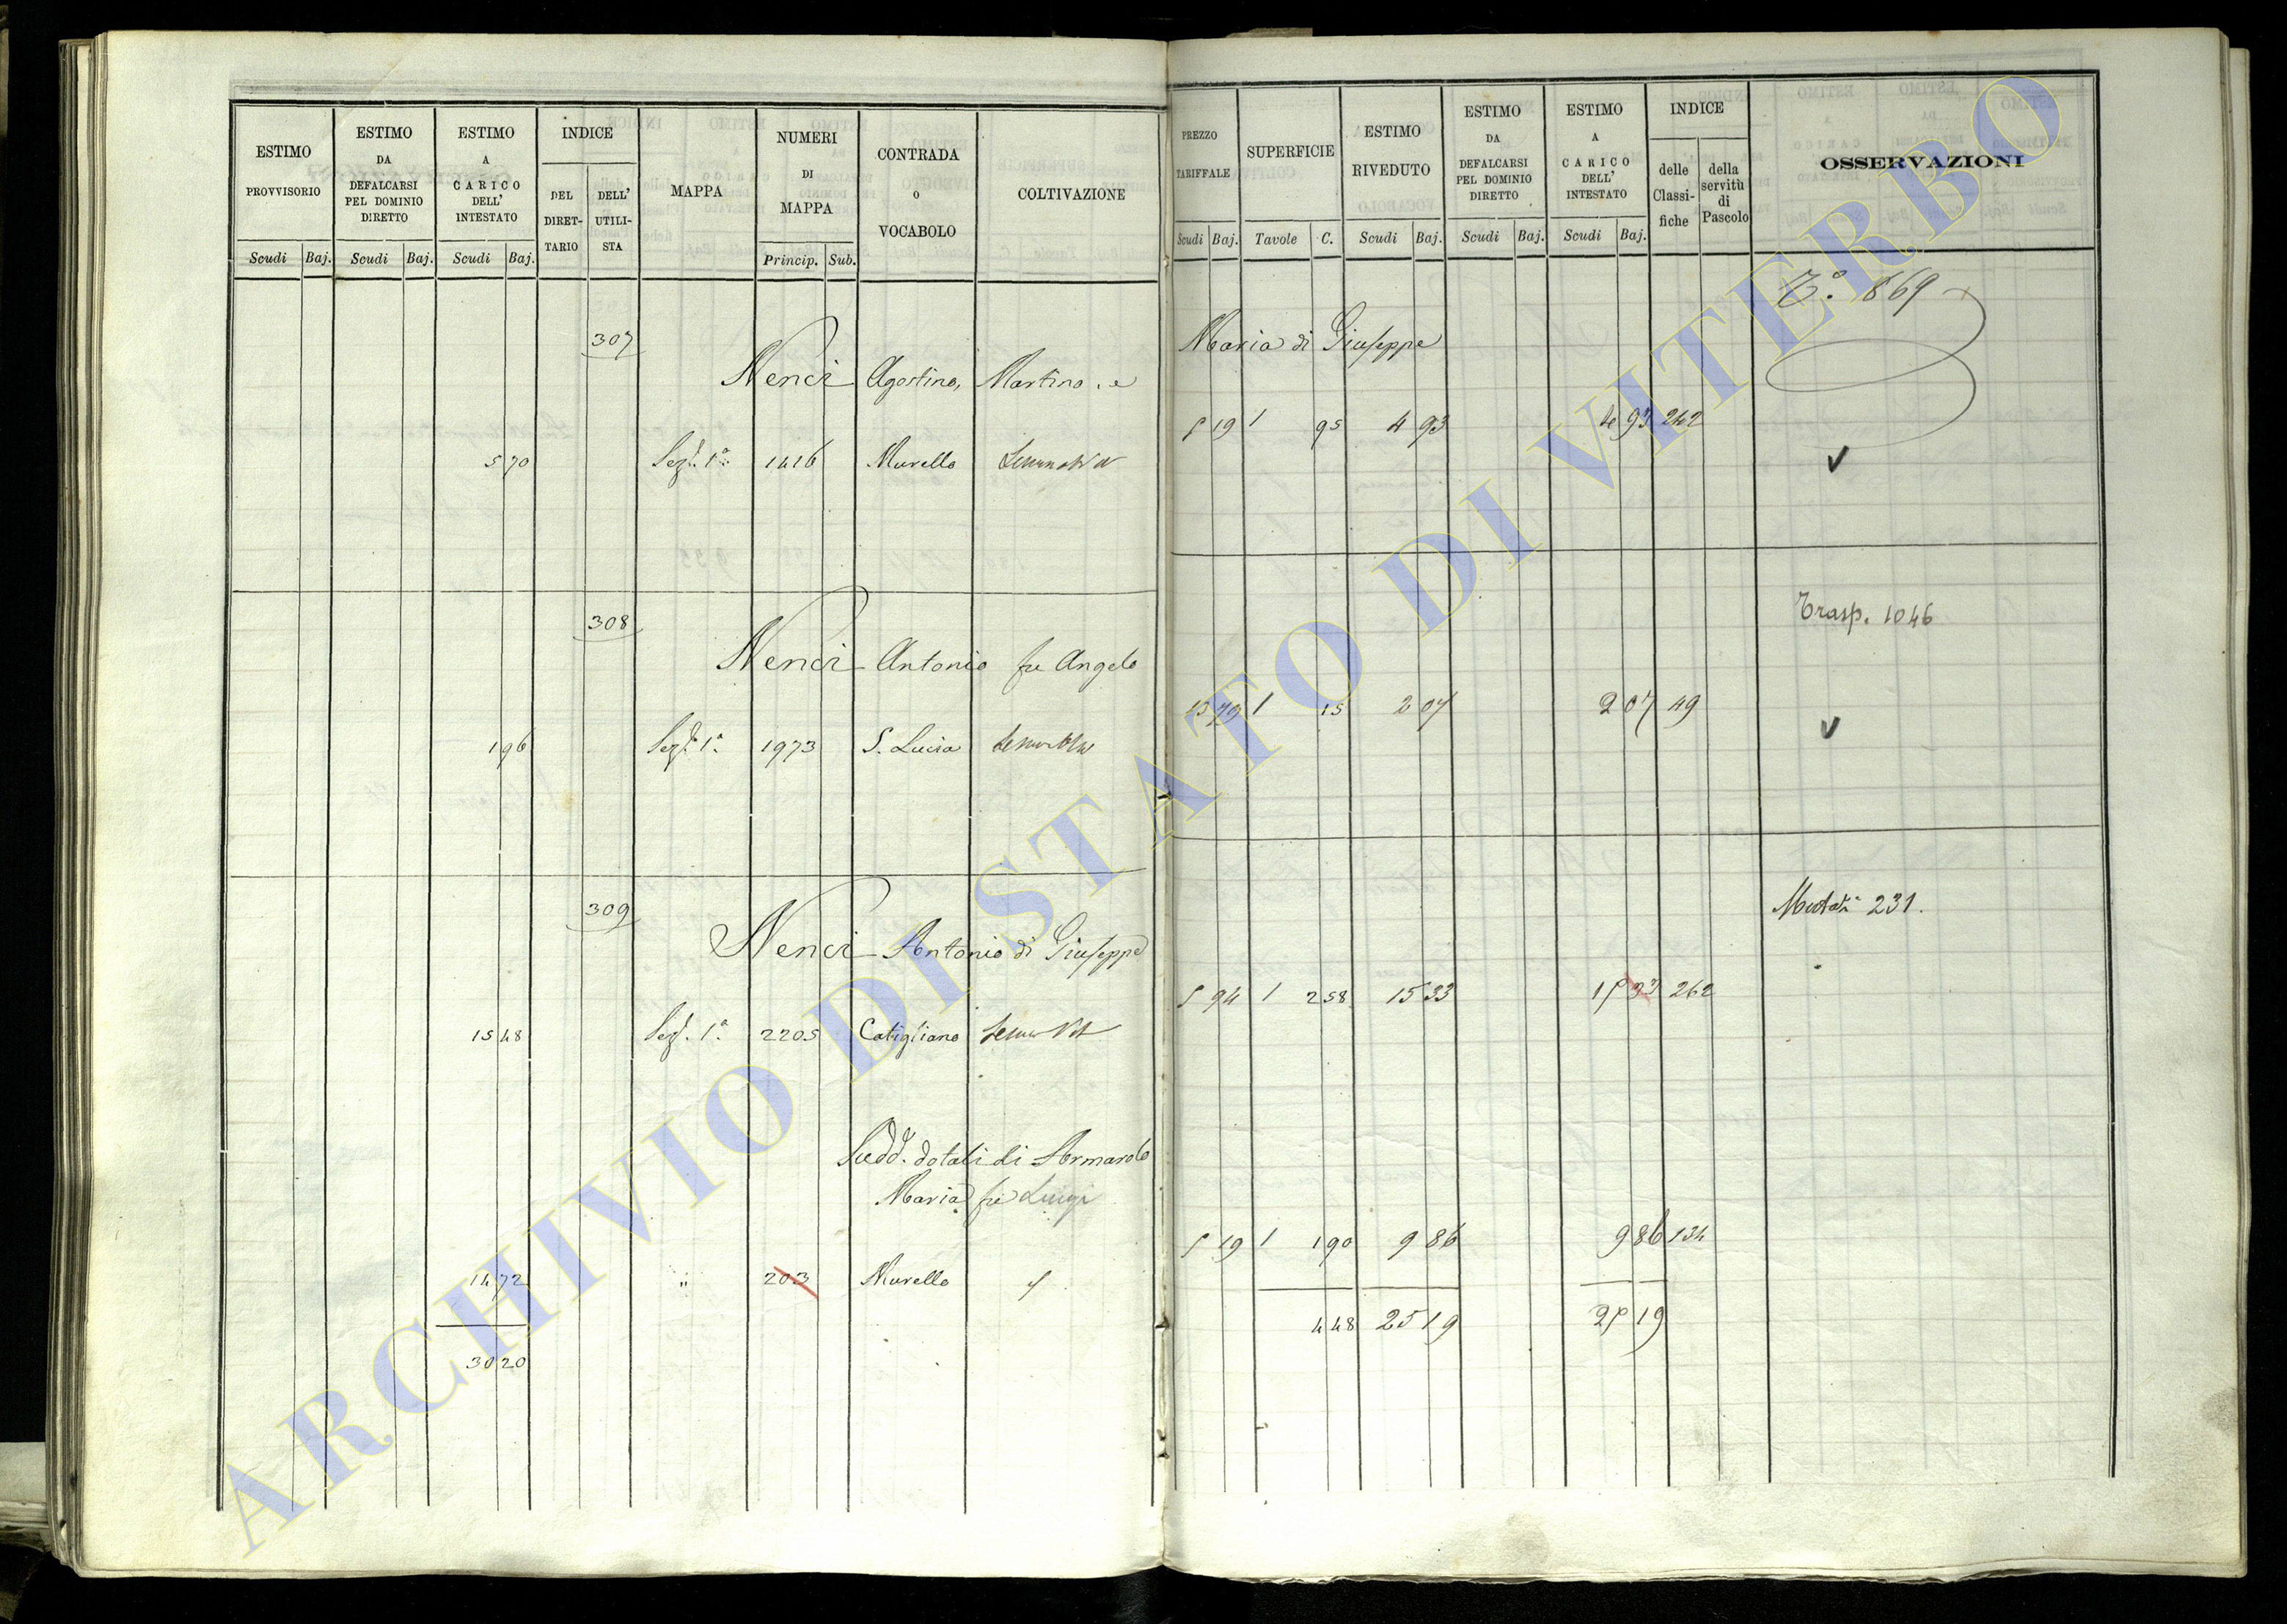 ESTIMO PROVVISORIO
ESTIMO DA DEFALCARSI PEL DOMINIO DIRETTO
ESTIMO A CARICO DELL' INTESTATO
INDICE
DEL DIRET-TARIO
DELL' UTILI-STA
MAPPA
NUMERI DI MAPPA
CONTRADA O VOCABOLO
COLTIVAZIONE
Scudi Baj. Scudi Baj. Scudi Baj. Princip. Sub.
307
Nenci Agostino, Martino, e
5 70 Sez. 1a 1416 Murello
308
Nenci Antonio fu Angelo
1 96 Sez. 1a 1973 S. Lucia
309
Nenci Antonio di Giuseppe
15 48 Sez. 1a 2205 Catigliano
Sudd. dotali di
Maria fu Luigi
14 72 " 203 Murello
30 20
PREZZO TARIFFALE
SUPERFICIE
ESTIMO RIVEDUTO
ESTIMO DA DEFALCARSI PEL DOMINIO DIRETTO
ESTIMO A CARICO DELL' INTESTATO
INDICE
delle Classi-fiche
della servitù di Pascolo
OSSERVAZIONI
Scudi Baj. Tavole C. Scudi Baj. Scudi Baj. Scudi Baj.
T.° 869
Maria di Giuseppe
5 19 1 95 4 93 4 93 242
V
Trasp. 1046
1 15 2 07 2 07 49
V
Mutata 231.
5 94 1 258 15 33 15 33 262
5 19 1 190 9 86 9 86 134
448 25 19 25 19
ARCHIVIO DI STATO DI VITERBO